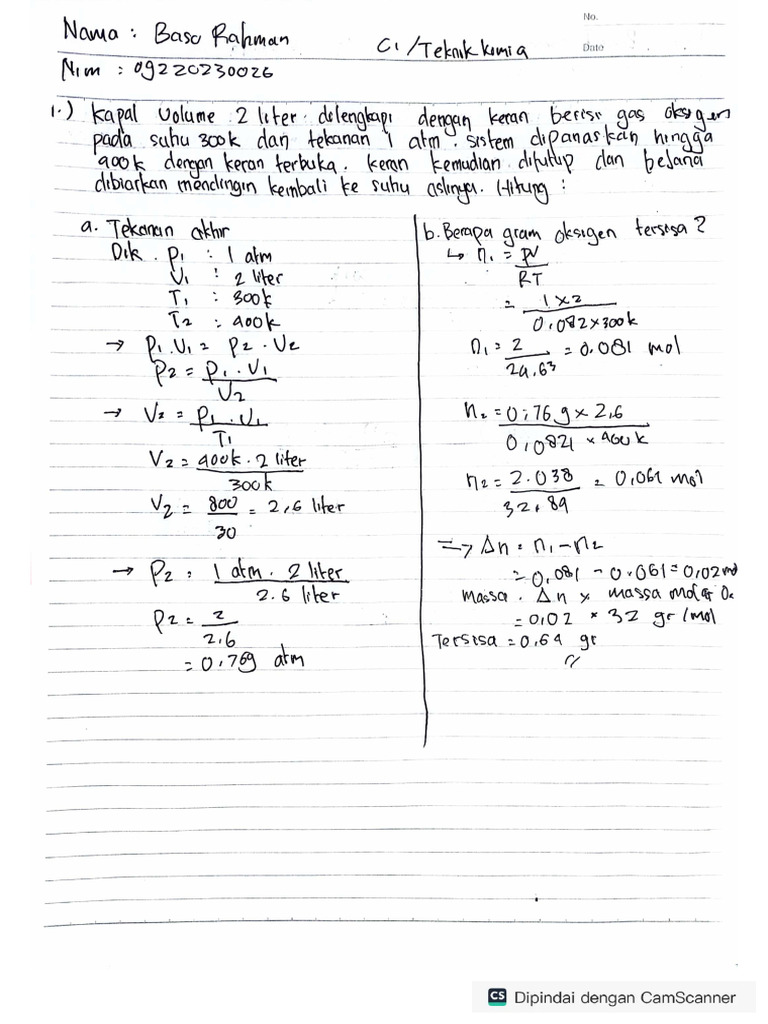 No.
Nama : Baso Rahman
C1/Teknik kimia
Date
Nim : 09220230026
1.) Kapal volume 2 liter dilengkapi dengan keran berisi gas oksigen
pada suhu 300k dan tekanan 1 atm. sistem dipanaskan hingga
400k dengan keran terbuka. keran kemudian ditutup dan bejana
dibiarkan mendingin kembali ke suhu aslinya. Hitung :
a. Tekanan akhir
Dik . P1 : 1 atm
V1 : 2 liter
T1 : 300k
T2 : 400k
→ P1.V1 = P2 . V2
P2 = P1 . V1
V2
→ V2 = P1 . V1
T1
V2 = 400k . 2 liter
300k
V2 = 800 = 2,6 liter
30
→ P2 : 1 atm . 2 liter
2.6 liter
P2 = 2
2,6
= 0.769 atm
b. Berapa gram oksigen tersisa ?
↳ n1 = PV
RT
= 1 x 2
0.082 x 300k
n1 = 2 = 0.081 mol
24,63
n2 = 0,76 g x 2,6
0,0821 x 400k
n2 = 2.038 = 0,061 mol
32,84
=> Δn = n1 - n2
= 0,081 - 0.061 = 0,02 mol
Massa . Δn x massa molar O2
= 0,02 x 32 gr/mol
Tersisa = 0,64 gr
CS Dipindai dengan CamScanner